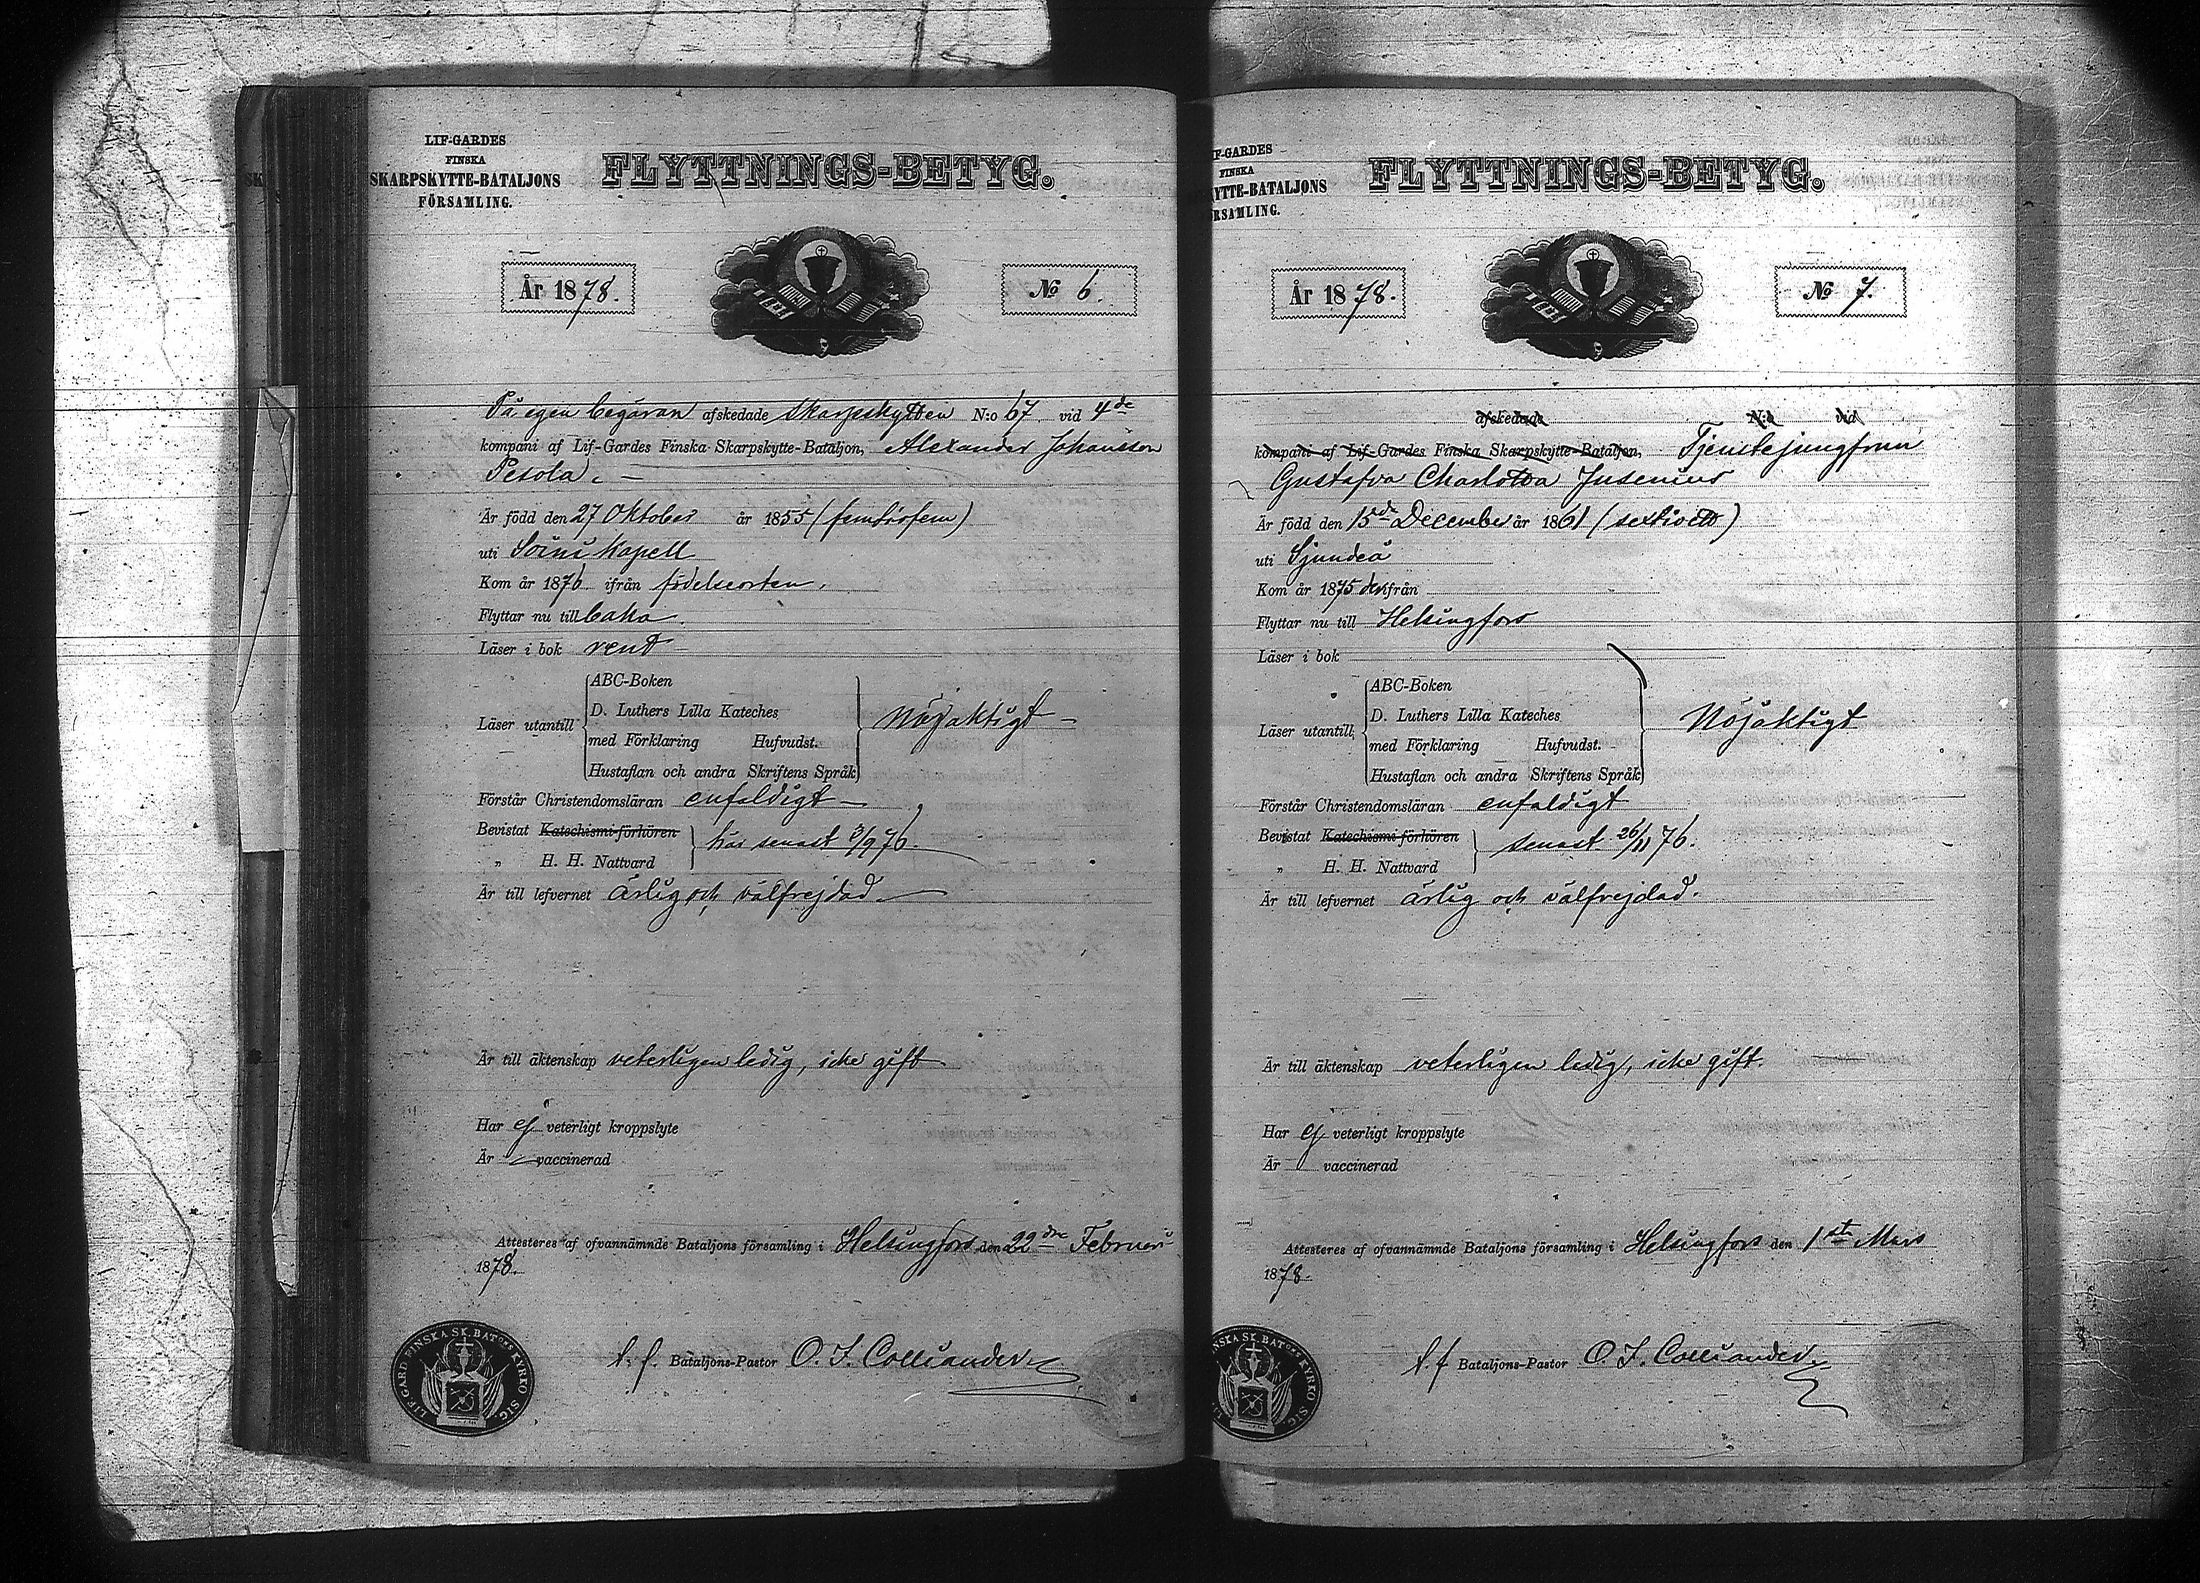 LIF-GARDES
FINSKA
SKARPSKYTTE-BATALJONS
FÖRSAMLING.
FLYTTNINGS-BETYG.
År 1878.
No 6.
På egen begäran afskedade Skarpskytten N:o 67 vid 4de
kompani af Lif-Gardes Finska Skarpskytte-Bataljon, Alexander Johansson
Pesola. –
Är född den 27 Oktober år 1855 (femtiofem)
uti Soini Kapell
Kom år 1876 ifrån födelseorten.
Flyttar nu tillbaka.
Läser i bok rent
ABC-Boken
D. Luthers Lilla Kateches
Läser utantill med Förklaring Hufvudst. Nöjaktigt –
Hustaflan och andra Skriftens Språk
Förstår Christendomsläran enfaldigt –
Bevistat Katechismi-förhören här senast 3/9 76.
„ H. H. Nattvard
Är till lefvernet ärlig och välfrejdad.
Är till äktenskap veterligen ledig, icke gift
Har ej veterligt kroppslyte
Är vaccinerad
Attesteres af ofvannämnde Bataljons församling i Helsingfors den 22dre Februari
1878.
t. f. Bataljons-Pastor O. I. Colliander
LIF. GARD FINSKA SK. BATONS KYRKO SIG.
F-GARDES
FINSKA
YTTE-BATALJONS
RSAMLING.
FLYTTNINGS-BETYG.
År 1878.
No 7.
afskedade N:o vid
kompani af Lif-Gardes Finska Skarpskytte-Bataljon, Tjenstejungfrun
Gustafva Charlotta Jusenius
Är född den 15de December år 1861 (sextioett)
uti Sjundeå
Kom år 1875 den ifrån
Flyttar nu till Helsingfors
Läser i bok
ABC-Boken
D. Luthers Lilla Kateches
Läser utantill, med Förklaring Hufvudst. Nöjaktigt
Hustaflan och andra Skriftens Språk
Förstår Christendomsläran enfaldigt
Bevistat Katechismi-förhören senast 26/11 76.
„ H. H. Nattvard
Är till lefvernet ärlig och välfrejdad.
Är till äktenskap veterligen ledig, icke gift.
Har ej veterligt kroppslyte
Är vaccinerad
Attesteres af ofvannämnde Bataljons församling i Helsingfors den 1sta Mars
1878.
t. f Bataljons-Pastor O. I. Colliander
NSKA SK. BATONS KYRKO SIG.